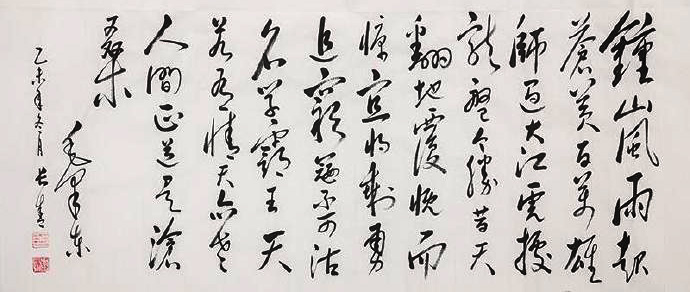 鍾山風雨起
蒼黃百萬雄
師過大江虎據
龍盤今勝昔天
翻地覆慨而
慷宜將剩勇
追窮寇不可沽
名學霸王天
若有情天亦老
人間正道是滄
桑
毛澤東
乙未年冬月長青